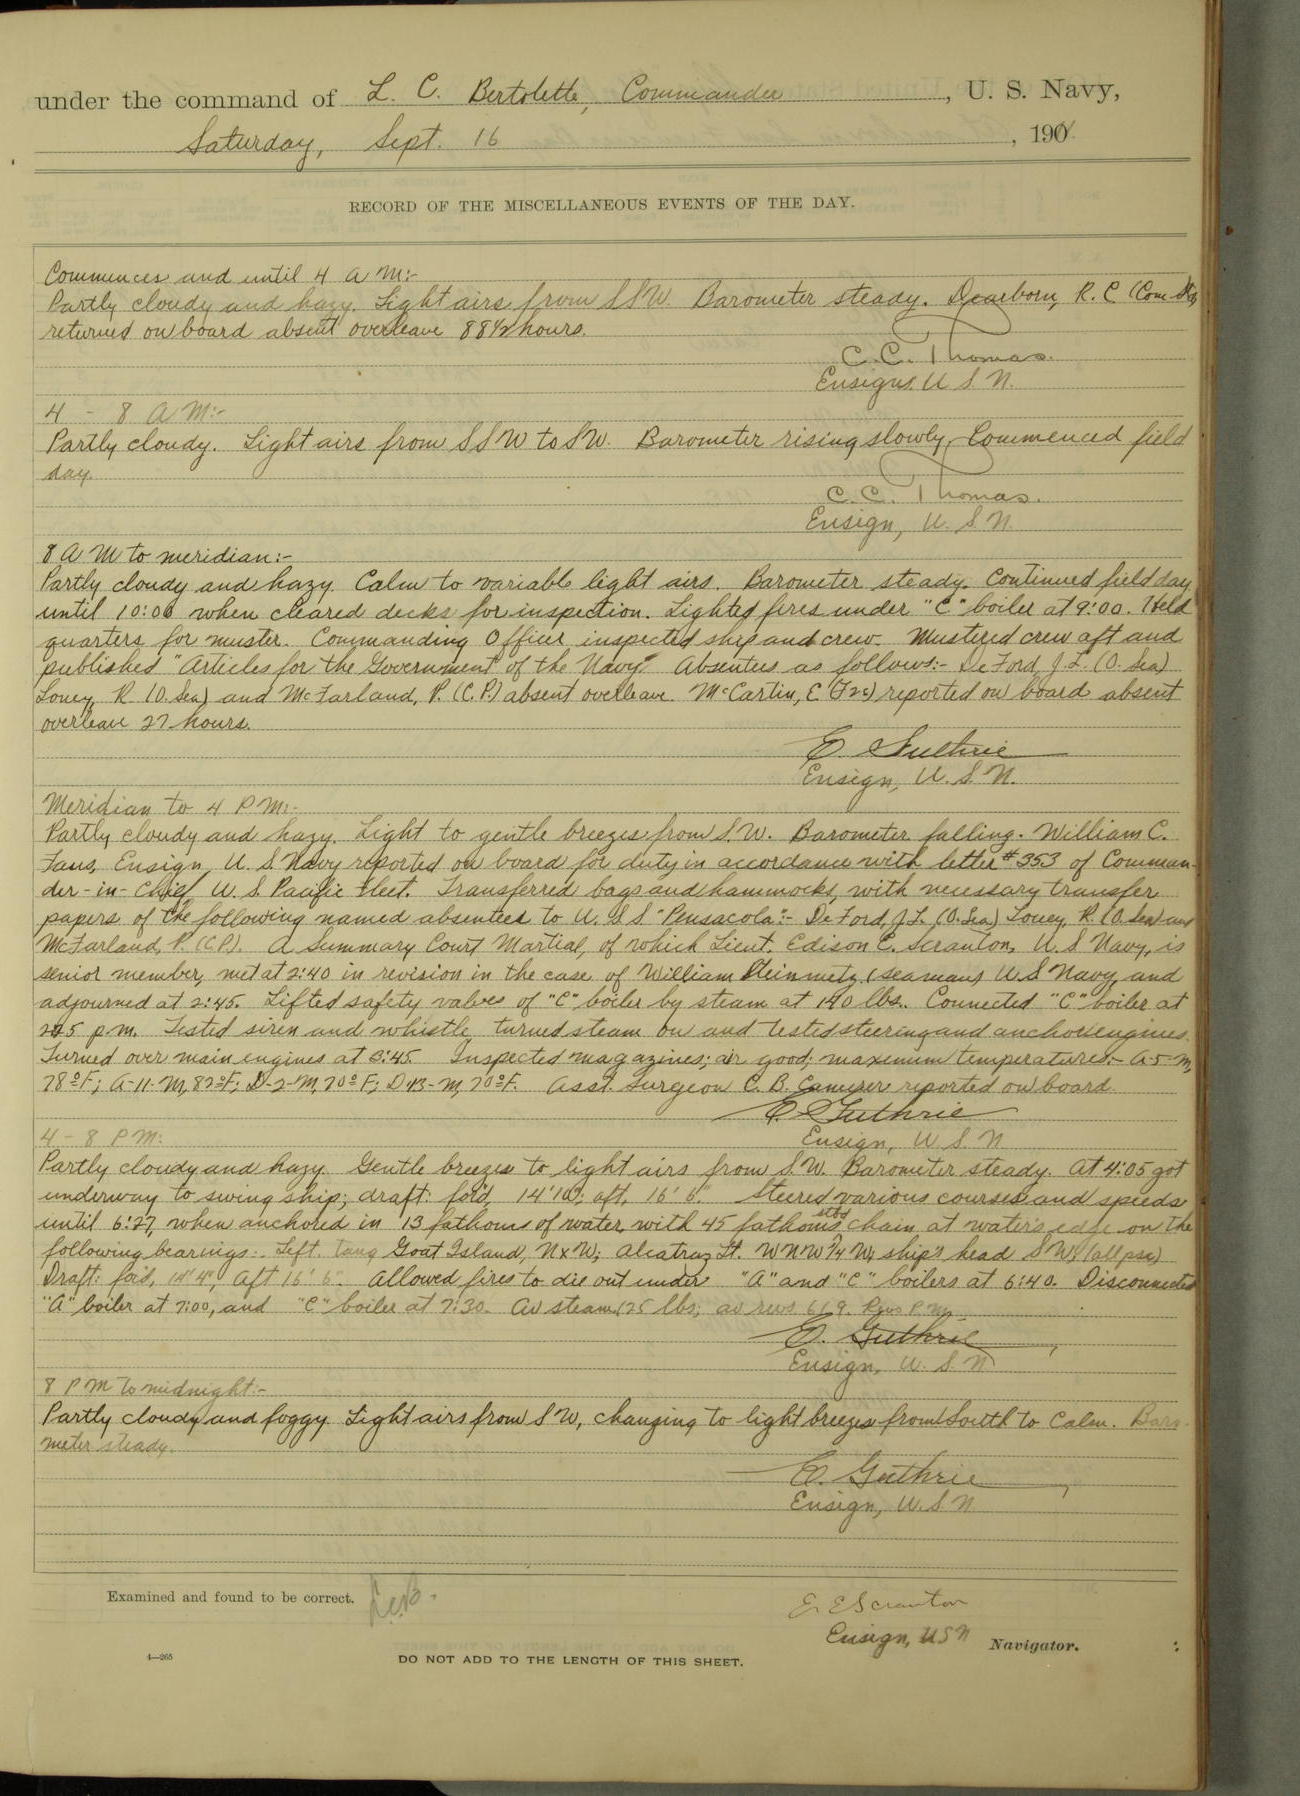 under the command of L. C. Bertolette, Commander, U. S. Navy,
Saturday, Sept. 16, 190
RECORD OF THE MISCELLANEOUS EVENTS OF THE DAY.
Commences and until 4 A M:-
Partly cloudy and hazy. Light airs from SSW. Barometer steady. Dearborn, R. C (Com Std)
returned on board absent overleave 88½ hours.
C. C. Thomas.
Ensign, U S N.
4 - 8 A M:-
Partly cloudy. Light airs from SSW to SW. Barometer rising slowly. Commenced field
day.
C. C. Thomas.
Ensign, U. S. N.
8 A M to meridian:-
Partly cloudy and hazy. Calm to variable light airs. Barometer steady. Continued field day
until 10:00 when cleared decks for inspection. Lighted fires under "C" boiler at 9:00. Held
quarters for muster. Commanding Officer inspected ship and crew. Mustered crew aft and
published "Articles for the Government of the Navy". Absentees as follows:- De Ford J. L. (O. Sea)
Louey, R. (O. Sea) and McFarland, P. (C.P.) absent overleave. McCartin, E (F2c) reported on board absent
overleave 27 hours.
E. Guthrie
Ensign, U. S. N.
Meridian to 4 P M:-
Partly cloudy and hazy. Light to gentle breezes from S.W. Barometer falling. William C.
Faus, Ensign, U. S. Navy reported on board for duty in accordance with letter #353 of Comman-
der-in-Chief U. S. Pacific Fleet. Transferred bags and hammocks, with necessary transfer
papers of the following named absentees to U. S. S "Pensacola":- De Ford, J. L. (O. Sea) Louey, R. (O. Sea) and
McFarland, P. (C.P.). A Summary Court Martial, of which Lieut. Edison E. Scranton, U. S Navy, is
senior member, met at 2:40 in revision in the case of William Steinmetz (seaman) U S Navy, and
adjourned at 2:45. Lifted safety valves of "C" boiler by steam at 140 lbs. Connected "C" boiler at
p m. Tested siren and whistle, turned steam on and tested steering and anchor engines.
Turned over main engines at 3:45. Inspected magazines; air good; maximum temperatures:- A-5-M,
78°F; A-11-M, 82°F; D-2-M, 70°F; D-13-M, 70°F. Asst. Surgeon C. B. Camerer reported on board.
E. Guthrie
Ensign, U S N
4 - 8 P M:
Partly cloudy and hazy. Gentle breezes to light airs from S.W. Barometer steady. At 4:05 got
underway to swing ship; draft: for'd, 14' 10"; aft, 16' 6". Steered various courses and speeds
until 6:27, when anchored in 13 fathoms of water, with 45 fathoms stbd chain at water's edge on the
following bearings:- Left tang Goat Island, NxW; Alcatraz Lt. WNW ¾ W; ship's head SW; (all psc)
Draft: for'd, 14' 4", Aft 16' 6". Allowed fires to die out under "A" and "C" boilers at 6:40. Disconnected
"A" boiler at 7:00, and "C" boiler at 7:30. Av steam 125 lbs; av revs 61.9. Revs P.M.
E. Guthrie
Ensign, U. S. N
8 P M to midnight:-
Partly cloudy and foggy. Light airs from SW, changing to light breezes from South to Calm. Baro-
meter steady.
E. Guthrie
Ensign, U. S. N
Examined and found to be correct. L.C.B.
E. E Scranton
Ensign, USN Navigator.
4—265
DO NOT ADD TO THE LENGTH OF THIS SHEET.